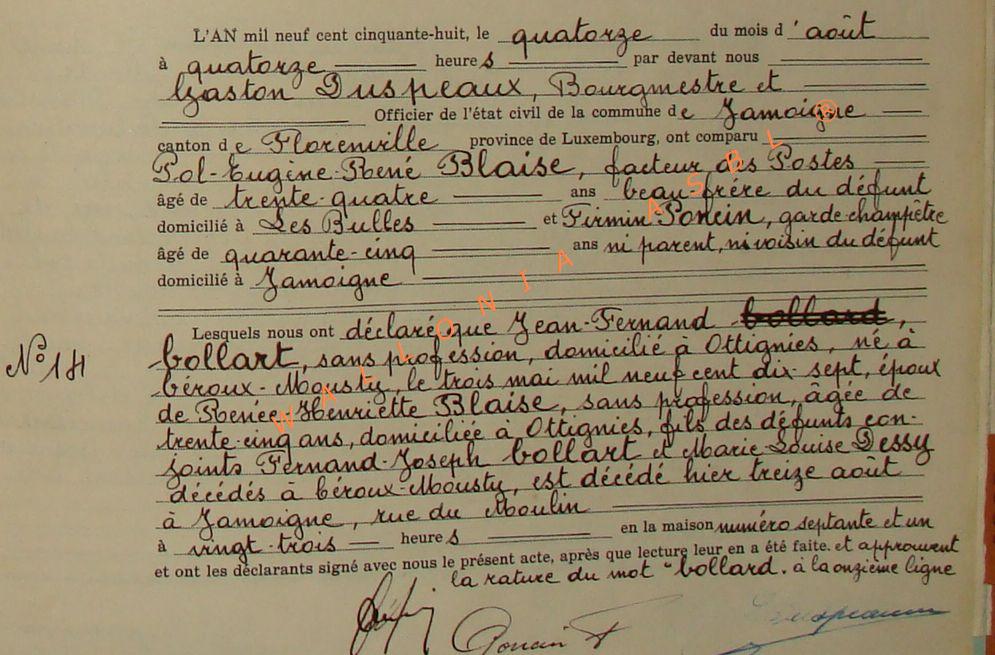 L'AN mil neuf cent cinquante-huit, le quatorze du mois d'août
à quatorze heures par devant nous
Gaston Duspeaux, Bourgmestre et
Officier de l'état civil de la commune de Jamoigne
canton de Florenville province de Luxembourg, ont comparu
Pol-Eugène-René Blaise, facteur des Postes
âgé de trente-quatre ans beau-frère du défunt
domicilié à Les Bulles et Firmin Poncin, garde-champêtre
âgé de quarante-cinq ans ni parent, ni voisin du défunt
domicilié à Jamoigne
Lesquels nous ont déclaré que Jean-Fernand Collard,
N° 14
Collart, sans profession, domicilié à Ottignies, né à
Céroux-Mousty, le trois mai mil neuf cent dix-sept, époux
de Renée-Henriette Blaise, sans profession, âgée de
trente-cinq ans, domiciliée à Ottignies, fils des défunts con-
joints Fernand-Joseph Collart et Marie-Louise Dessy
décédés à Céroux-Mousty, est décédé hier treize août
à Jamoigne, rue du Moulin
à vingt-trois heures en la maison numéro septante et un
et ont les déclarants signé avec nous le présent acte, après que lecture leur en a été faite. et approuvent
la rature du mot "Collard. à la onzième ligne
Poncin F
Duspeaux
WALLONIA ASBL ®